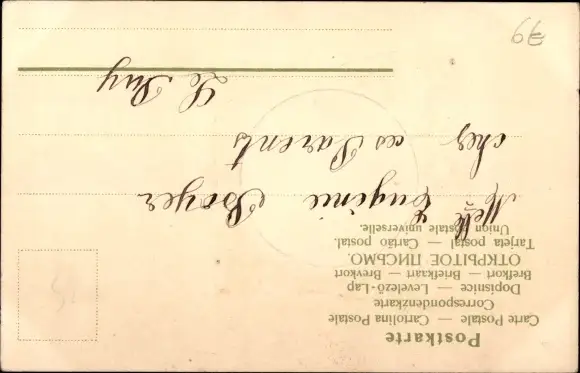 Postkarte
Carte Postale — Cartolina Postale
Correspondenzkarte
Dopisnice — Levelező-Lap
Brefkort — Briefkaart — Brevkort
ОТКРЫТОЕ ПИСЬМО.
Tarjeta postal — Cartão postal.
Union postale universelle.
Melle Eugénie Boyer
chez ces Parents
Le Puy